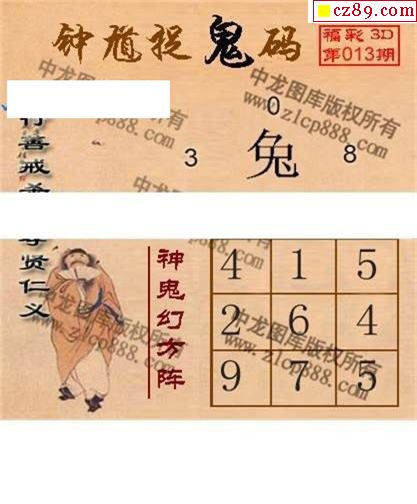 cz89.com
钟馗捉鬼码
福彩 3D
第013期
中龙图库版权所有
www.zlcp888.com
0
3 兔 8
行善戒
尊贤仁义
神鬼幻方阵
4 1 5
2 6 4
9 7 5
中龙图库版权所有
www.zlcp888.com